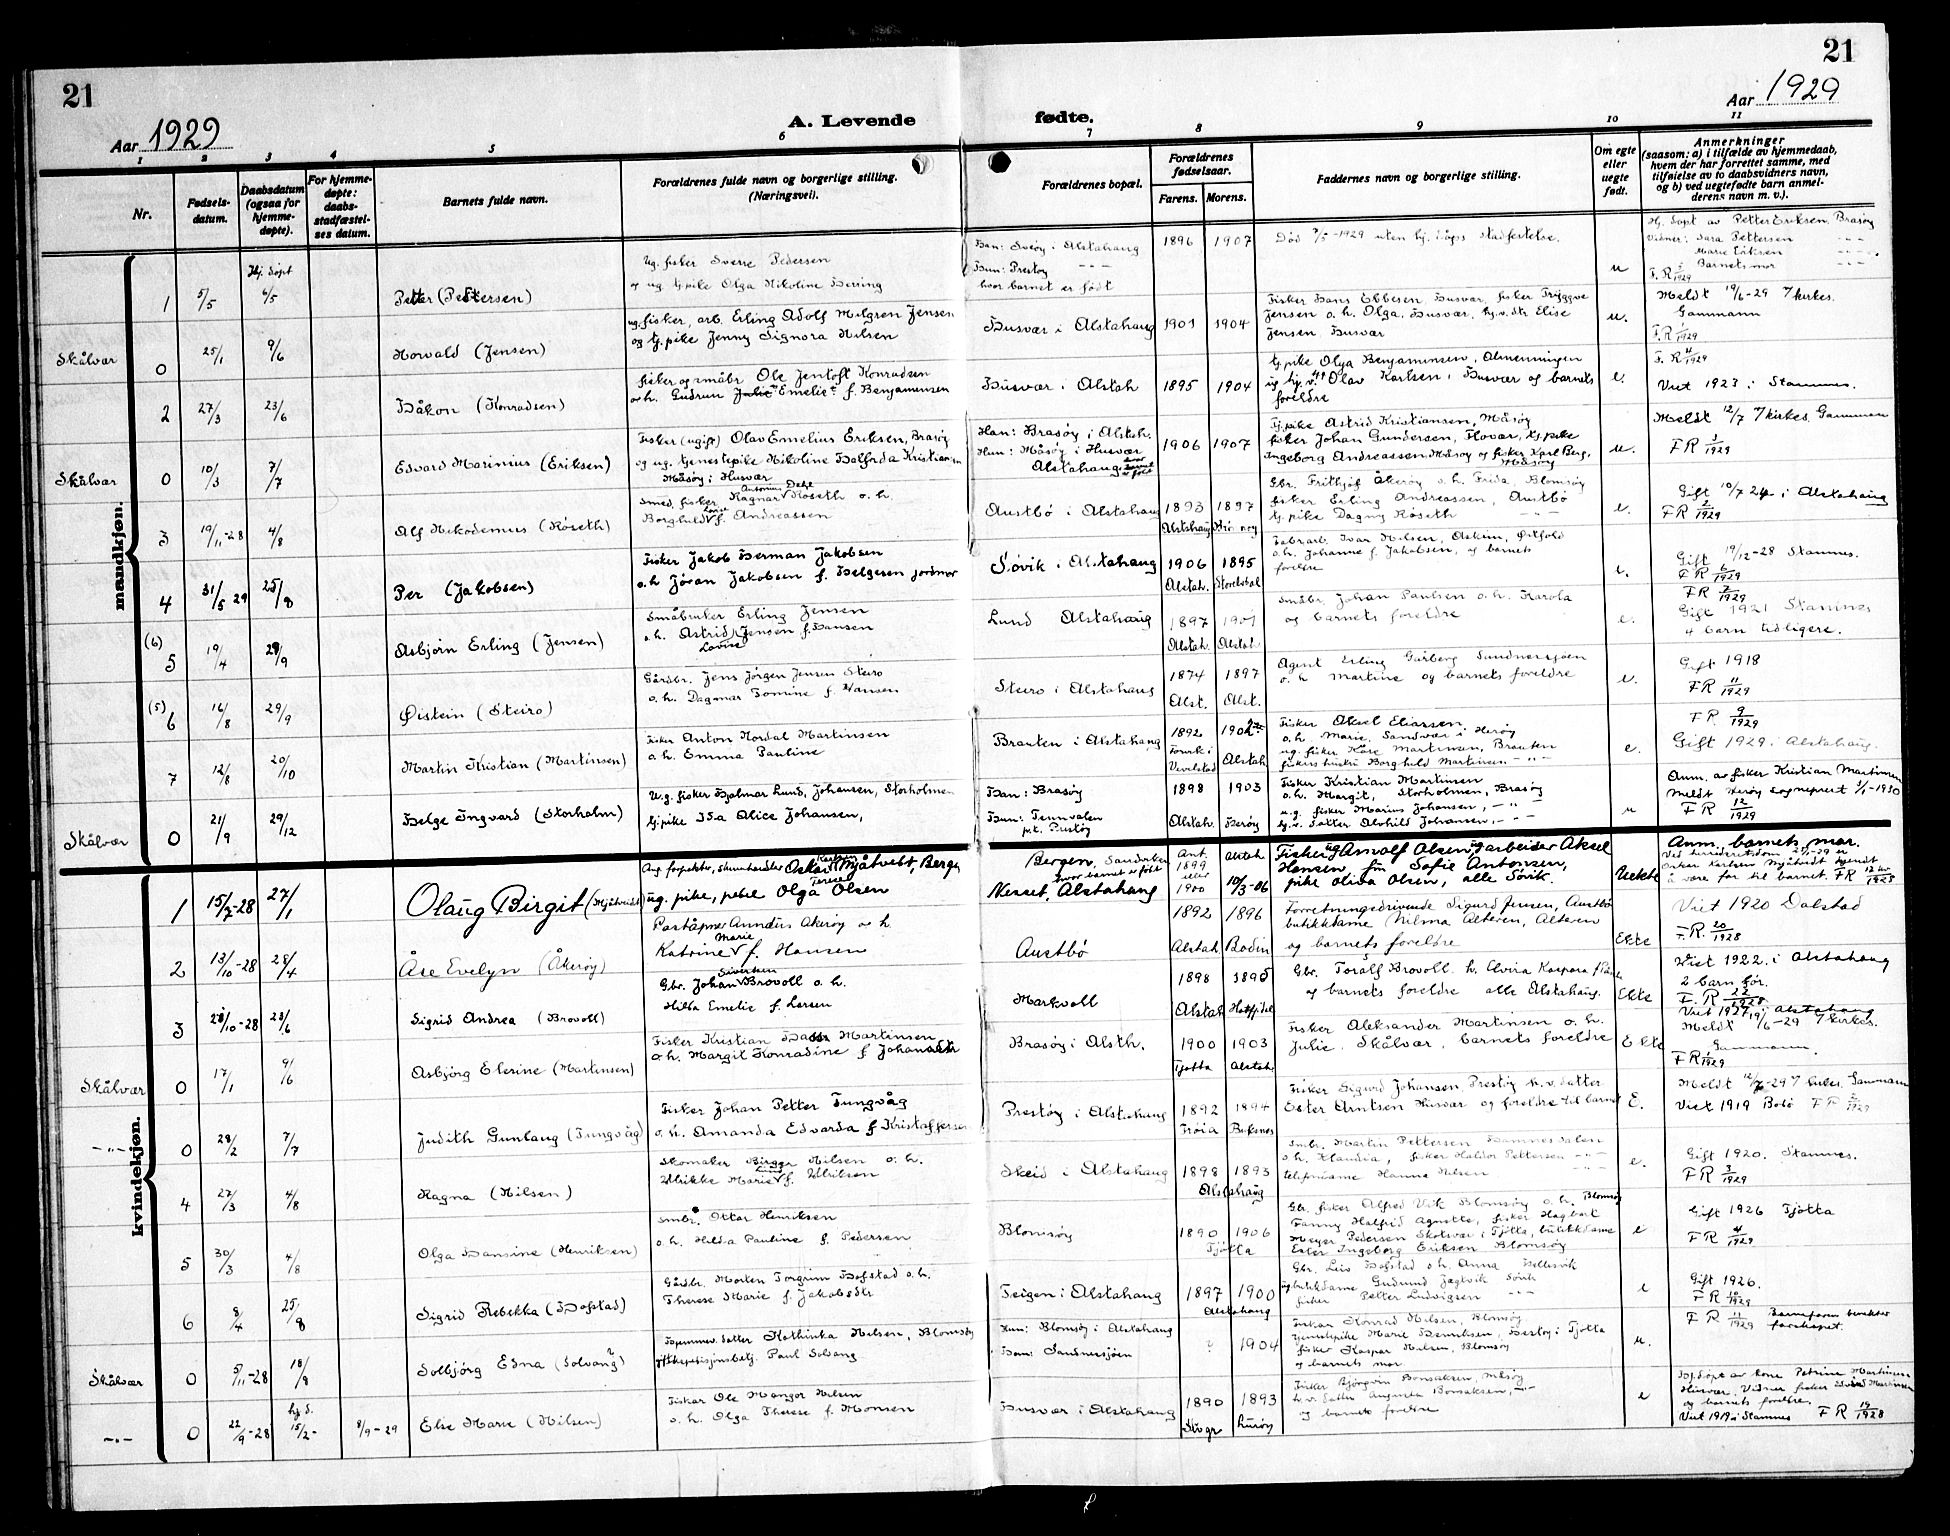 21
21
Aar 1929
A. Levende
fødte.
Aar 1929
1 2 3 4 5 6 7 8 9 10 11
Nr.
Fødsels-
datum.
Daabsdatum
(ogsaa for
hjemme-
døpte).
For hjemme-
døpte:
daabs-
stadfæstel-
ses datum.
Barnets fulde navn.
Forældrenes fulde navn og borgerlige stilling.
(Næringsvei).
Forældrenes bopæl.
Forældrenes
fødselsaar.
Farens. Morens.
Faddernes navn og borgerlige stilling.
Om egte
eller
uegte
født.
Anmerkninger
(saasom: a) i tilfælde av hjemmedaab,
hvem der har forrettet samme, med
tilføielse av to daabsvidners navn,
og b) ved uegtefødte barn anmel-
derens navn m. v.).
mandkjøn.
1 5/5 Hj. døpt 6/5 Petter (Pettersen)
Ug. fisker Sverre Pedersen
og ug. tj.pike Olga Nikoline Herring
Han: Svëøy i Alstahaug
Hun: Prestøy -"-
hvor barnet er født
1896 1907
Død 9/5-1929 uten hj. dåps stadfestelse.
u
Hj. døpt av Petter Eriksen, Brasøy
Vidner: Sara Pettersen -"-
Marie Eriksen
Barnets mor
F.R. 5/1929
Skålvær 0 25/1 9/6 Horvald (Jensen)
ug. fisker, arb. Erling Adolf Milgren Jensen
og tj. pike Jenny Signora Nilsen
Husvær i Alstahaug 1901 1904
Fisker Hans Ebbesen Husvær, fisker Tryggve
Jensen o.h. Olga, Husvær, hj.v.dtr Elise
Jensen Husvær
u.
Meldt 19/6-29 7 kirkes.
Gammann
F.R. 1/1929
2 27/3 23/6 Håkon (Konradsen)
fisker og småbr. Ole Jentoft Konradsen
o.h. Gudrun Emelie f. Benjaminsen
Husvær i Alstah 1895 1904
tj.pike Olga Benjaminsen, Almenningen
ug hj.v. Olav Karlsen, Husvær og barnets
foreldre
e.
F.R. 4/1929
Viet 1923 i Stamnes.
Skålvær 0 10/3 7/7 Edvard Marinius (Eriksen)
Fisker (ugift) Olav Emelius Eriksen, Brasøy
og ug. tjenestepike Nikoline Halfrida Kristiansen
Måsøy i Husvær
Han: Brasøy i Alstah.
Hun: Måsøy i Husvær
Alstahaug
1906 1907
Tj.pike Astrid Kristiansen, Måsøy
fisker Johan Gundersen, Flovær, tj.pike
Ingeborg Andreassen Måsøy og fisker Karl Berg,
Måsøy
u.
Meldt 12/7 7 kirkes. Gammann
FR 3/1929
3 19/11-28 4/8 Alf Nikodemus (Røseth)
Smed, fisker Ragnar Røseth o.h.
Borghild f. Andreassen
Austbø i Alstahaug 1893 1897
Alstahaug Brønnøy
Gbr. Frithjof Åkerøy o.h. Frida, Blomsøy
fisker Erling Andreassen, Austbø
tj.pike Dagny Røseth -"-
e.
Gift 10/7 24 i Alstahaug
FR 2/1929
4 31/5 29 25/8 Per (Jakobsen)
Fisker Jakob Herman Jakobsen
o.h Jóran Jakobsen f. Helgesen jordmor
Søvik i Alstahaug 1906 1895
Alstah.
Fabrarb. Ivar Nilsen, Askim, Østfold
o.h. Johanne f. Jakobsen, og barnets
foreldre
e.
Gift 19/12-28 Stamnes.
F R 6/1929
(6) 5 19/4 29/9 Asbjørn Erling (Jensen)
Småbruker Erling Jensen
o.h. Astrid Lovise Jensen f. Hansen
Lund Alstahaug 1897 1901
Alstah. Alstah.
Småbr. Johan Paulsen o.h. Karola
og barnets foreldre
e.
F R 7/1929
Gift 1921 Stamnes
4 barn tidligere.
(5) 6 16/8 29/9 Øistein (Steiro)
Gårdbr. Jens Jörgen Jensen Steiro
o.h. Dagmar Tomine f. Hansen
Steiro i Alstahaug 1874 1897
Alst. Alst.
Agent Erling Garberg Sandnessjøen
o.h Martine og barnets foreldre
e.
Gift 1918
FR 11/1929
7 12/8 20/10 Martin Kristian (Martinsen)
Fisker Anton Hordal Martinsen
o.h. Emma Pauline
Brauten i Alstahaug 1892 1902
Vevelstad Alstah
Fisker Aksel Eliassen,
o.h. Marie, Sandvær i Herøy
ug. fisker Kåre Martinsen, Brauten
fiskerhustru Borghild Martinsen -"-
e.
FR. 9/1929
Gift 1929 i Alstahaug.
Skålvær 0 21/9 29/12 Helge Ingvard (Storholm)
U.g. fisker Hjalmar Lund, Johansen, Storholmen
tj.pike Ida Alice Johansen,
Han: Brasøy
Hun: Tennvalen
pt. Prestøy
1898 1903
Alstah. Herøy
Fisker Kristian Martinsen
o.h. Margit, Storholmen, Brasøy
u.g. fisker Marius Johansen, -"-
hj.v. datter Alvhild Johansen, -"-
u
Anm. av fisker Kristian Martinsen
meldt Herøy sogneprest 1/1-1930
F R 12/1929
kvindekjøn.
1 15/7-28 27/1 Olaug Birgit (Mjåtveidt)
Oskar Karlsen Mjåtveit, Bergen
ug. pike, pelse Olga Terese Olsen
Bergen, Sandviken
hvor barnet er født
Nesset, Alstahaug
Ant. 1899 eller 1900
Alstah 10/3-06
Fisker ug Arnolf Olsen, ug arbeider Aksel
Hansen, frk Sofie Antonsen,
pike Oliva Olsen, alle Søvik.
Uekte
Anm. barnets mor.
Oskar Karlsen Mjåtveidt kjendt
å være far til barnet. FR 12/1928
2 13/10-28 28/4 Åse Evelyn (Åkerøy)
Poståpner Anndus Åkerøy o h
Katrine Marie f. Hansen
Austbø 1892 1896
Alstah Bodin
Forretningsdrivende Sigurd Jensen, Austbø
butikkdame Wilma Alteren, Alteren
og barnets foreldre
Ekte
Viet 1920 Dalstad
F.R. 20/1928
3 28/10-28 23/6 Sigrid Andrea (Brovoll)
Gbr. Johan Sivertsen Brovoll o.h.
Hilda Emelie f. Larsen
Markvoll 1898 1895
Alstah
Gbr. Toralf Brovoll h. Elvira Kaspara
og barnets foreldre alle Alstahaug.
Ekte
Viet 1922. i Alstahaug
2 barn før.
F.R 22/1928
Skålvær 0 17/1 9/6 Asbjörg Elerine (Martinsen)
Fisker Kristian Martinsen
o.h. Margit Konradine f Johansdtr
Brasøy i Alsth. 1900 1903
Tjøtta Alstah
Fisker Aleksander Martinsen o.h.
Julie, Skålvær, barnets foreldre
Ekte
Viet 1927 i Alstahaug
Meldt 19/6-29 7 kirkes.
Gammann.
FR 1/1929
-"- 0 28/2 7/7 Judith Gunlaug (Tungvåg)
Fisker Johan Petter Tungvåg
o.h. Amanda Edvarda f Kristoffersen
Prestøy i Alstahaug 1892 1894
Frøia Buksnes
Fisker Sigurd Johansen Prestøy h.v. datter
Ester Arntsen Husvær og foreldre til barnet
E.
Meldt 12/7-29 7 kirkes. Gammann
Viet 1919 Bodø F R 2/1929
4 27/3 4/8 Ragna (Nilsen)
Skomaker Birger Nilsen o.h.
Ulrikke Marie Lund f. Ulrilsen
Skeid i Alstahaug 1898 1893
Alstahaug
Smbr. Martin Pettersen Hamnesdalen
o.h. Klaudia, fisker Haldor Pettersen -"-
telefondame Hanna Nilsen -"-
e.
Gift 1920. Stamnes.
F R 3/1929
5 30/3 4/8 Olga Hansine (Henriksen)
Smbr. Ottar Henriksen
o.h. Hilda Pauline f. Pedersen
Blomsøy 1890 1906
Tjøtta
Gbr. fisker Alfred Vik Blomsøy o.h. Blomsøy
Fanny Halfrid Agnette, fisker Hagbart
Meyer Pedersen Skotsvær i Tjøtta, butikkdame
Ester Ingeborg Eriksen Blomsøy
e
Gift 1926 Tjøtta
FR 4/1929
6 8/4 25/8 Sigrid Rebekka (Hofstad)
Gårdbr. Morten Torgrim Hofstad o.h.
Therese Marie f. Jakobsdtr
Teigen i Alstahaug 1897 1900
Alstahaug
Gbr. Leiv Hofstad o.h. Anna Bellesvik
butikkdame Gudrund Jægtvik Søvik
fisker Petter Ludvigsen -"-
e
Gift 1926.
F R 10/1929
Skålvær 0 5/11-28 18/8 Solbjörg Edna (Solvang)
Hjemmev. datter Kathinka Nilsen, Blomsøy
Ekspedisjonsbetj. Paul Solvang
Hun: Blomsøy i Alstahaug
Han: Sandnessjøen
? 1904
Fisker Konrad Nilsen, Blomsøy
tjenestepike Marie Henriksen, Hestøy i Tjøtta
fisker Kaspar Nilsen, Blomsøy
og barnets mor
u.
F R 11/1929
-"- 0 22/9-28 hj.d. 15/2- 8/9-29 Else Marie (Nilsen)
Fisker Ole Mangor Nilsen
o.h. Olga Therese f. Monsen
Husvær i Alstahaug 1890 1893
Lurøy
Fisker Björgvin Bonsaksen, Måsøy
h.v. datter Augusta Bonsaksen, -"-
og barnets foreldre
e
Hj. døpt av kone Petrine Martinsen
Husvær. Vidner fisker Edvard Martinsen
og barnets foreldre.
Viet 1919 i Stamnes F R 19/1928